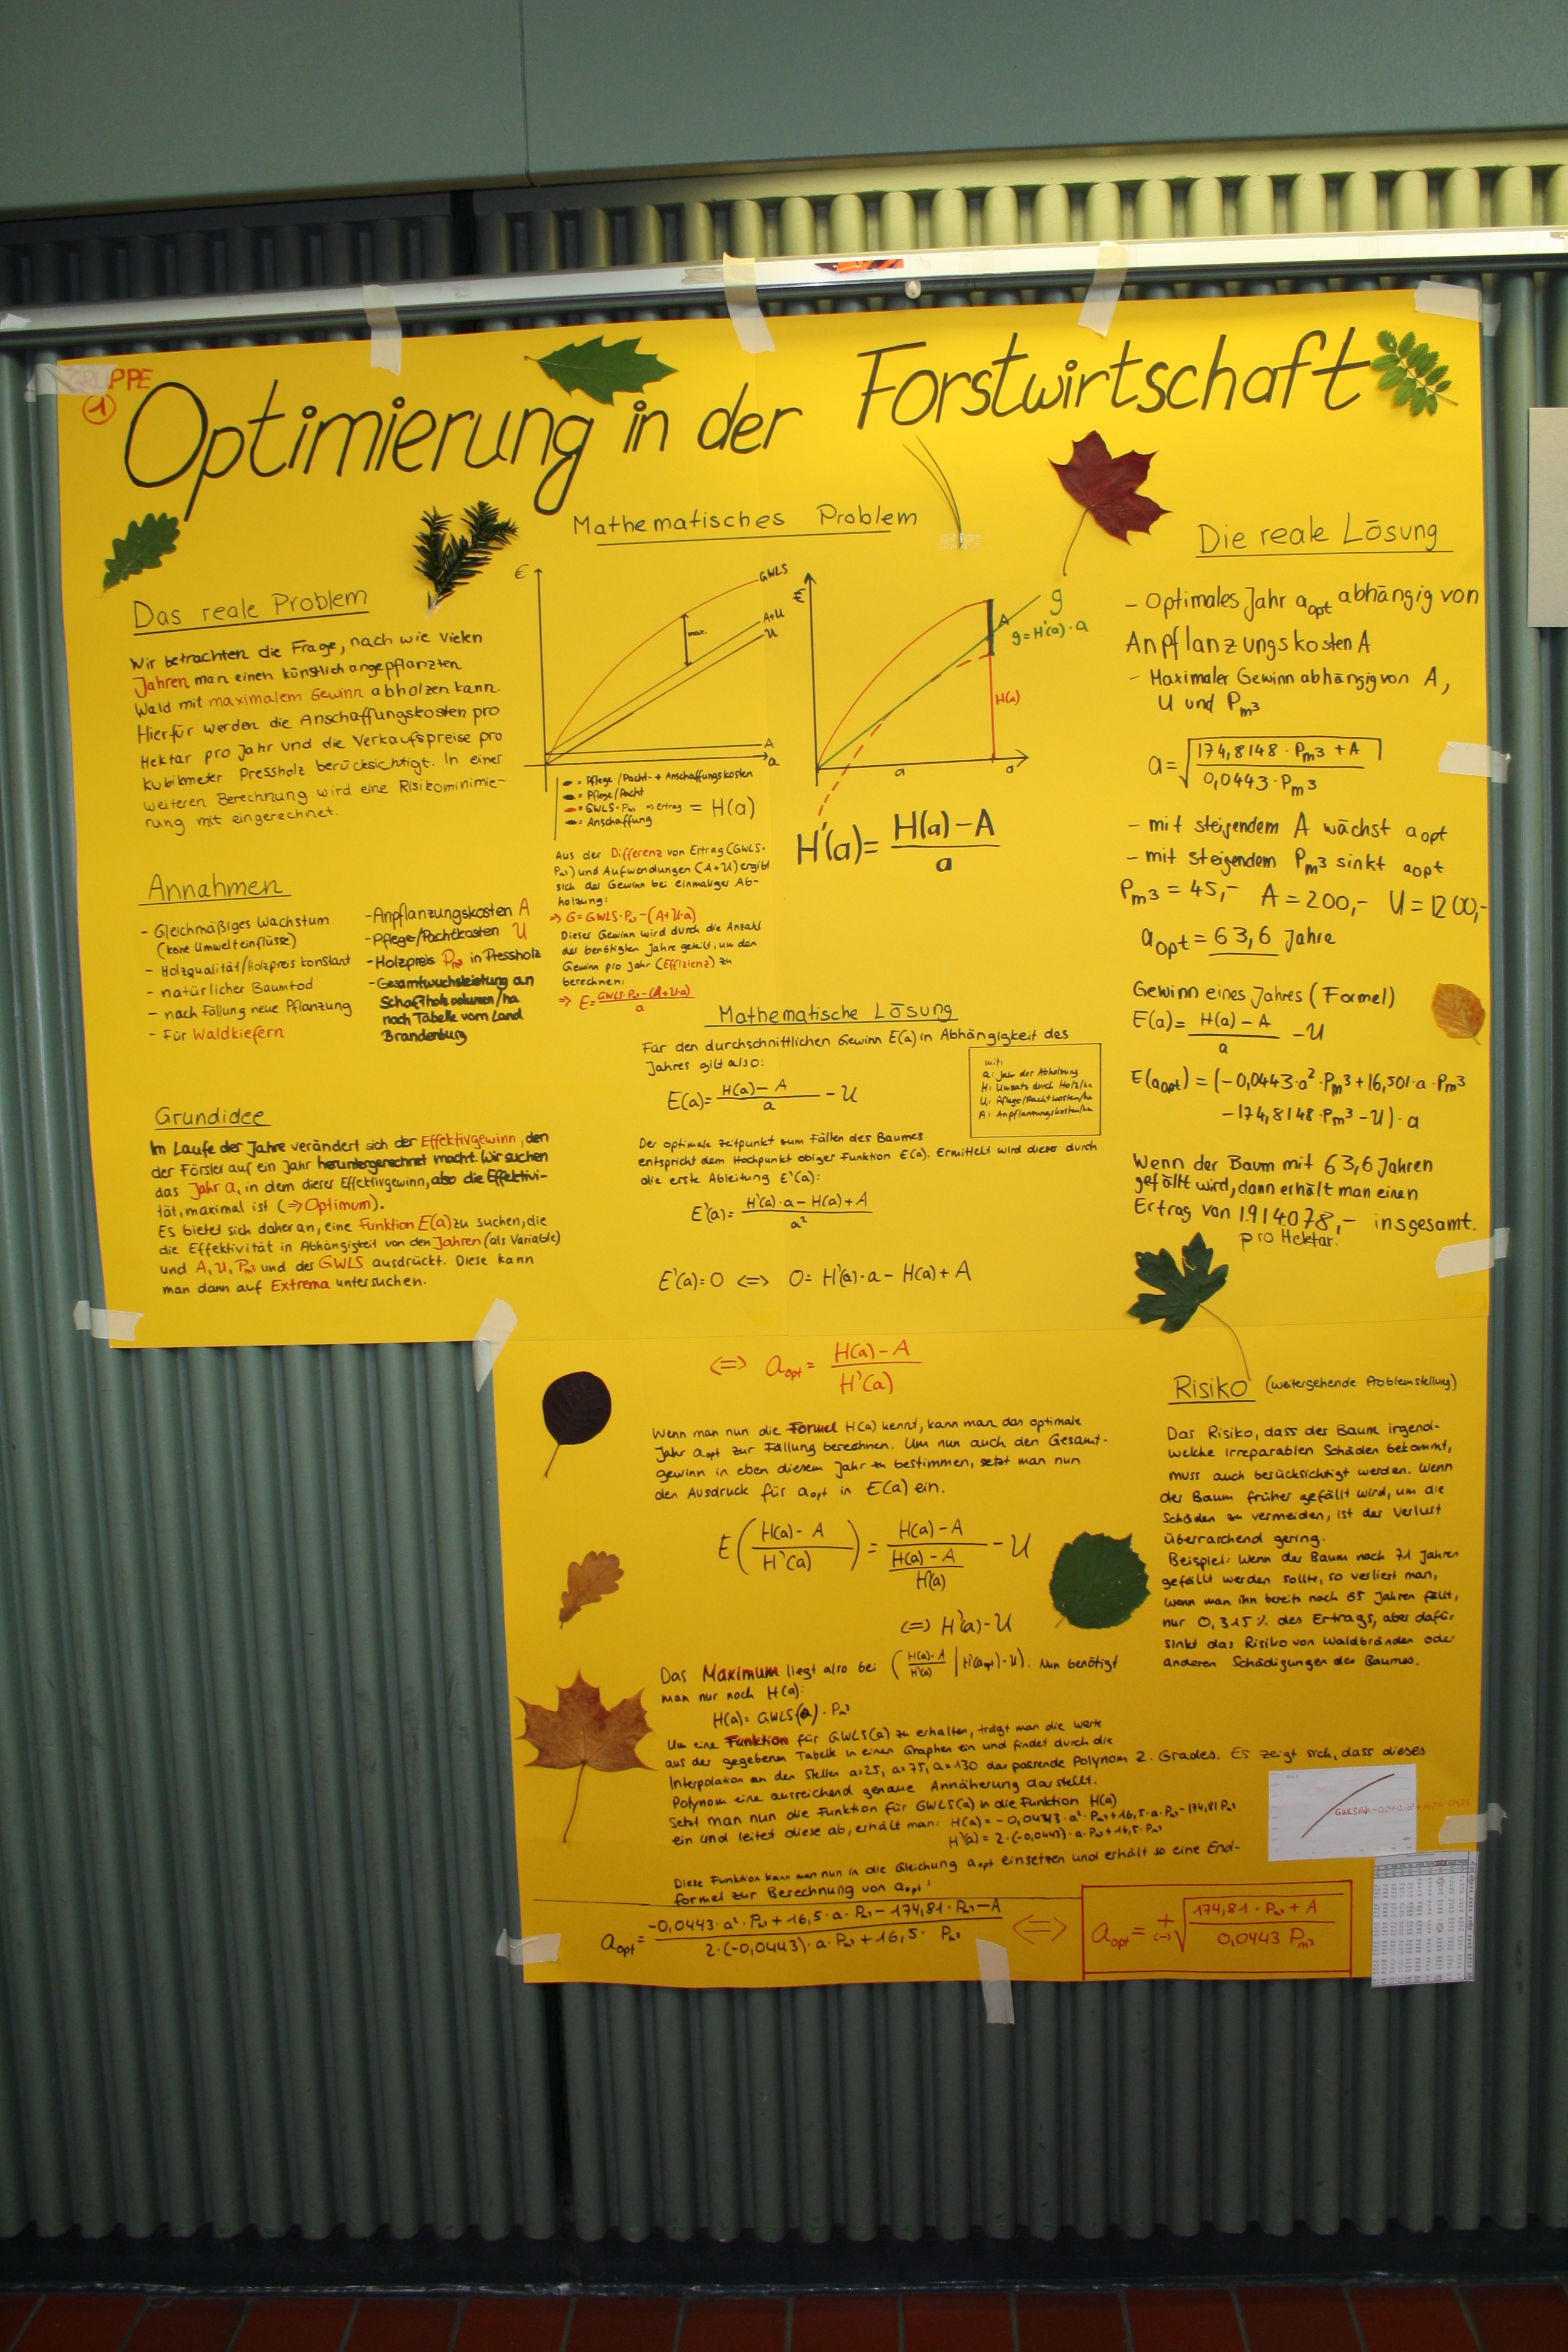 GRUPPE
1
Optimierung in der Forstwirtschaft
Das reale Problem
Wir betrachten die Frage, nach wie vielen
Jahren man einen künstlich angepflanzten
Wald mit maximalem Gewinn abholzen kann.
Hierfür werden die Anschaffungskosten pro
Hektar pro Jahr und die Verkaufspreise pro
Kubikmeter Pressholz berücksichtigt. In einer
weiteren Berechnung wird eine Risikominimie-
rung mit eingerechnet.
Annahmen
- Gleichmäßiges Wachstum
(keine Umwelteinflüsse)
- Holzqualität/Holzpreis konstant
- natürlicher Baumtod
- nach Fällung neue Pflanzung
- Für Waldkiefern
- Anpflanzungskosten A
- Pflege/Pachtkosten U
- Holzpreis Pm³ in Pressholz
- Gesamtwuchsleistung an
Schaftholzvolumen/ha
nach Tabelle vom Land
Brandenburg
Grundidee
Im Laufe der Jahre verändert sich der Effektivgewinn, den
der Förster auf ein Jahr heruntergerechnet macht. Wir suchen
das Jahr a, in dem dieser Effektivgewinn, also die Effektivi-
tät, maximal ist (⇒ Optimum).
Es bietet sich daher an, eine Funktion E(a) zu suchen, die
die Effektivität in Abhängigkeit von den Jahren (als Variable)
und A, U, Pm³ und der GWLS ausdrückt. Diese kann
man dann auf Extrema untersuchen.
Mathematisches Problem
€
GWLS
A+U
U
max.
A
a
= Pflege/Pacht- + Anschaffungskosten
= Pflege/Pacht
= GWLS·Pm³ ⇒ Ertrag = H(a)
= Anschaffung
Aus der Differenz von Ertrag (GWLS·
Pm³) und Aufwendungen (A+U) ergibt
sich der Gewinn bei einmaliger Ab-
holzung:
⇒ G = GWLS·Pm³ - (A+U·a)
Dieser Gewinn wird durch die Anzahl
der benötigten Jahre geteilt, um den
Gewinn pro Jahr (Effizienz) zu
berechnen:
⇒ E = (GWLS·Pm³ - (A+U·a)) / a
€
g
g = H'(a)·a
A
H(a)
a
a
H'(a) = (H(a) - A) / a
Mathematische Lösung
Für den durchschnittlichen Gewinn E(a) in Abhängigkeit des
Jahres gilt also:
E(a) = (H(a) - A) / a - U
mit:
a: Jahr der Abholzung
H: Umsatz durch Holz/ha
U: Pflege/Pachtkosten/ha
A: Anpflanzungskosten/ha
Der optimale Zeitpunkt zum Fällen des Baumes
entspricht dem Hochpunkt obiger Funktion E(a). Ermittelt wird dieser durch
die erste Ableitung E'(a):
E'(a) = (H'(a)·a - H(a) + A) / a²
E'(a) = 0 ⇔ 0 = H'(a)·a - H(a) + A
⇔ aopt = (H(a) - A) / H'(a)
Wenn man nun die Formel H(a) kennt, kann man das optimale
Jahr aopt zur Fällung berechnen. Um nun auch den Gesamt-
gewinn in eben diesem Jahr zu bestimmen, setzt man nun
den Ausdruck für aopt in E(a) ein.
E((H(a) - A) / H'(a)) = (H(a) - A) / ((H(a) - A) / H'(a)) - U
⇔ H'(a) - U
Das Maximum liegt also bei ((H(a) - A) / H'(a) | H'(aopt) - U). Nun benötigt
man nur noch H(a):
H(a) = GWLS(a) · Pm³
Um eine Funktion für GWLS(a) zu erhalten, trägt man die Werte
aus der gegebenen Tabelle in einen Graphen ein und findet durch die
Interpolation an den Stellen a=25, a=75, a=130 das passende Polynom 2. Grades. Es zeigt sich, dass dieses
Polynom eine ausreichend genaue Annäherung darstellt.
Setzt man nun die Funktion für GWLS(a) in die Funktion H(a)
ein und leitet diese ab, erhält man: H(a) = -0,0443·a²·Pm³ + 16,5·a·Pm³ - 174,81 Pm³
H'(a) = 2·(-0,0443)·a·Pm³ + 16,5·Pm³
Diese Funktion kann man nun in die Gleichung aopt einsetzen und erhält so eine End-
formel zur Berechnung von aopt:
aopt = (-0,0443·a²·Pm³ + 16,5·a·Pm³ - 174,81·Pm³ - A) / (2·(-0,0443)·a·Pm³ + 16,5·Pm³) ⇔ aopt = +(-) √((174,81·Pm³ + A) / (0,0443 Pm³))
Die reale Lösung
- Optimales Jahr aopt abhängig von
Anpflanzungskosten A
- Maximaler Gewinn abhängig von A,
U und Pm³
a = √((174,8148·Pm³ + A) / (0,0443·Pm³))
- mit steigendem A wächst aopt
- mit steigendem Pm³ sinkt aopt
Pm³ = 45,- A = 200,- U = 1200,-
aopt = 63,6 Jahre
Gewinn eines Jahres (Formel)
E(a) = (H(a) - A) / a - U
E(aopt) = (-0,0443·a²·Pm³ + 16,501·a·Pm³
- 174,8148·Pm³ - U)·a
Wenn der Baum mit 63,6 Jahren
gefällt wird, dann erhält man einen
Ertrag von 1.914.078,- insgesamt.
pro Hektar.
Risiko (weitergehende Problemstellung)
Das Risiko, dass der Baum irgend-
welche irreparablen Schäden bekommt,
muss auch berücksichtigt werden. Wenn
der Baum früher gefällt wird, um die
Schäden zu vermeiden, ist der Verlust
überraschend gering.
Beispiel: Wenn der Baum nach 71 Jahren
gefällt werden sollte, so verliert man,
wenn man ihn bereits nach 65 Jahren fällt,
nur 0,315% des Ertrags, aber dafür
sinkt das Risiko von Waldbränden oder
anderen Schädigungen des Baumes.